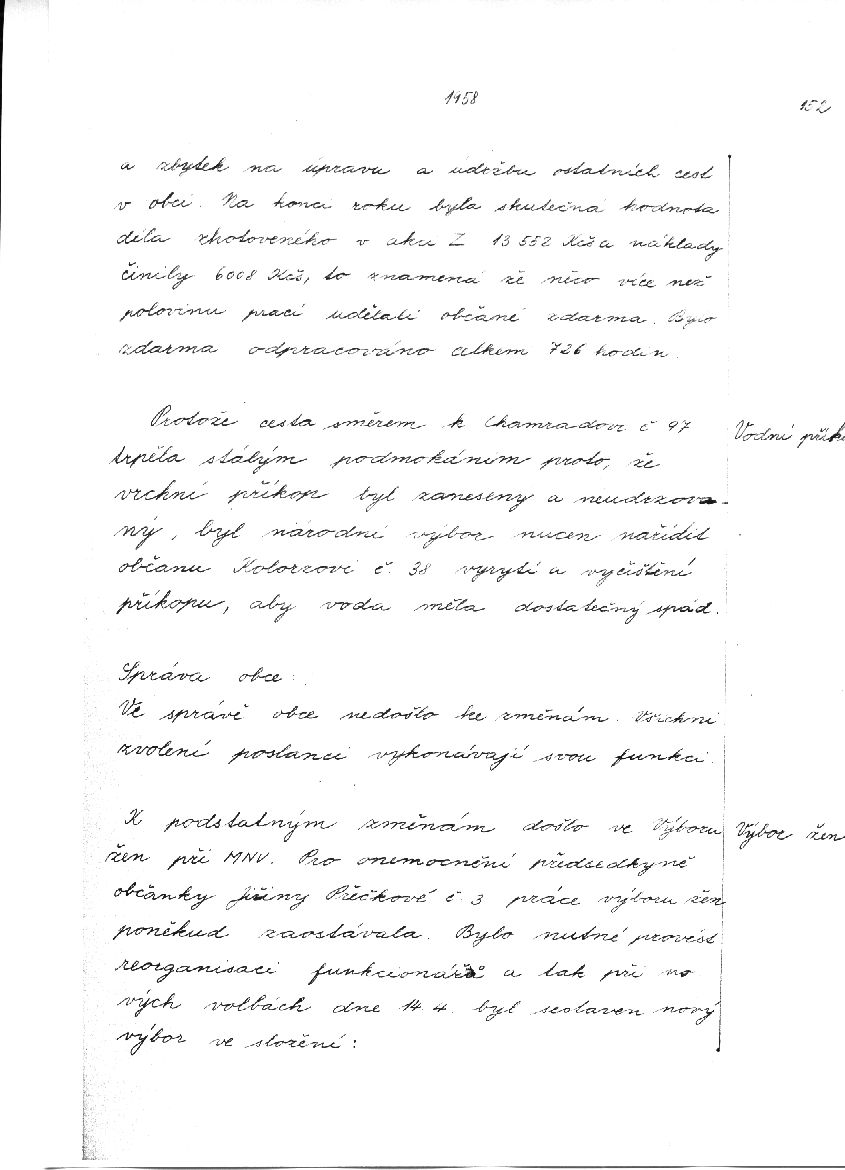 1958
152
a zbytek na úpravu a údržbu ostatních cest
v obci. Na konci roku byla skutečná hodnota
díla zhotoveného v akci Z 13 552 Kčs a náklady
činily 6008 Kčs, to znamená že něco více než
polovinu prací udělali občané zdarma. Bylo
zdarma odpracováno celkem 726 hodin.
Protože cesta směrem k Chamradovi č 97
Vodní přík
trpěla stálým podmokáním proto, že
vrchní příkop byl zanesený a neudržova-
ný, byl národní výbor nucen nařídit
občanu Kolorzovi č. 38 vyrytí a vyčištění
příkopu, aby voda měla dostatečný spád.
Správa obce:
Ve správě obce nedošlo ke změnám. Všichni
zvolení poslanci vykonávají svou funkci.
K podstatným změnám došlo ve Výboru
Výbor žen
žen při MNV. Pro onemocnění předsedkyně
občanky Jiřiny Přečkové č 3 práce výboru žen
poněkud zaostávala. Bylo nutné provést
reorganisaci funkcionářů a tak při no
vých volbách dne 14.4. byl sestaven nový
výbor ve složení: